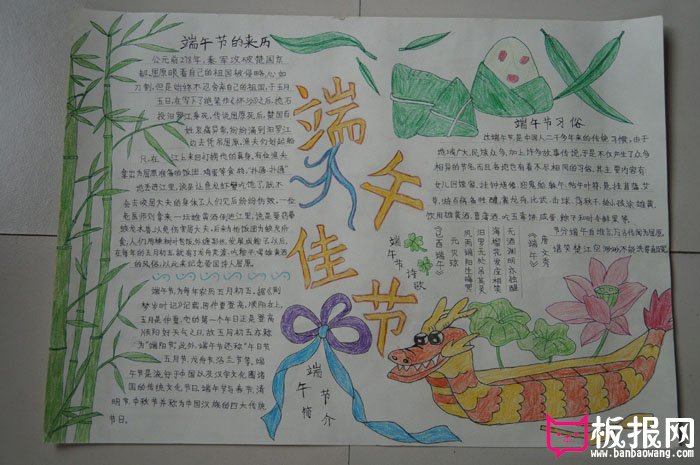 端午节的来历
公元前278年，秦军攻破楚国京
都。屈原眼看自己的祖国被侵略，心如
刀割，但是始终不忍舍弃自己的祖国，于五月
五日，在写下了绝笔作《怀沙》之后，抱石
投汨罗江身死，传说屈原死后，楚国百
姓哀痛异常，纷纷涌到汨罗江
边去凭吊屈原。渔夫们划起船
只，在江上来回打捞他的真身。有位渔夫
拿出为屈原准备的饭团、鸡蛋等食物，“扑通、扑通”
地丢进江里，说是让鱼龙虾蟹吃饱了，就不
会去咬屈大夫的身体了。人们见后纷纷仿效。一位
老医师则拿来一坛雄黄酒倒进江里，说是要药晕
蛟龙水兽，以免伤害屈大夫。后来为怕饭团为蛟龙所
食，人们用楝树叶包饭，外缠彩丝，发展成粽子。以后，
在每年的五月初五，就有了龙舟竞渡、吃粽子、喝雄黄酒
的风俗；以此来纪念爱国诗人屈原。
端午节为每年农历五月初五，据《荆
楚岁时记》记载，因仲夏登高，顺阳在上，
五月是仲夏，它的第一个午日正是登高
顺阳好天气之日，故五月初五亦称
为“端阳节”。此外，端午节还称“午日节
五月节、龙舟节、浴兰节等。端
午节是流行于中国以及汉字文化圈诸
国的传统文化节日，端午节与春节、清
明节、中秋节并称为中国汉族的四大传统
节日。
端午佳节
端午节习俗
过端午节，是中国人二千多年来的传统习惯，由于
地域广大，民族众多，加上许多故事传说，于是不仅产生了众多
相异的节名，而且各地也有着不尽相同的习俗。其主要内容有：
女儿回娘家，挂钟馗像，
佩香囊，赛龙舟，比武，击球，荡秋千，给小孩涂雄黄，
饮用雄黄酒、菖蒲酒，吃五毒饼、咸蛋、粽子和时令鲜果等
《端午》
唐 文秀
节分端午自谁言，万古传闻为屈原。
堪笑楚江空渺渺，不能洗得直臣冤。
《己酉端午》
元 贝琼
风雨端阳生晦冥
汨罗无处吊英灵
海榴花发应相笑
无酒渊明亦独醒
端午节
诗歌
端午节简介
板报网
www.banbaowang.com